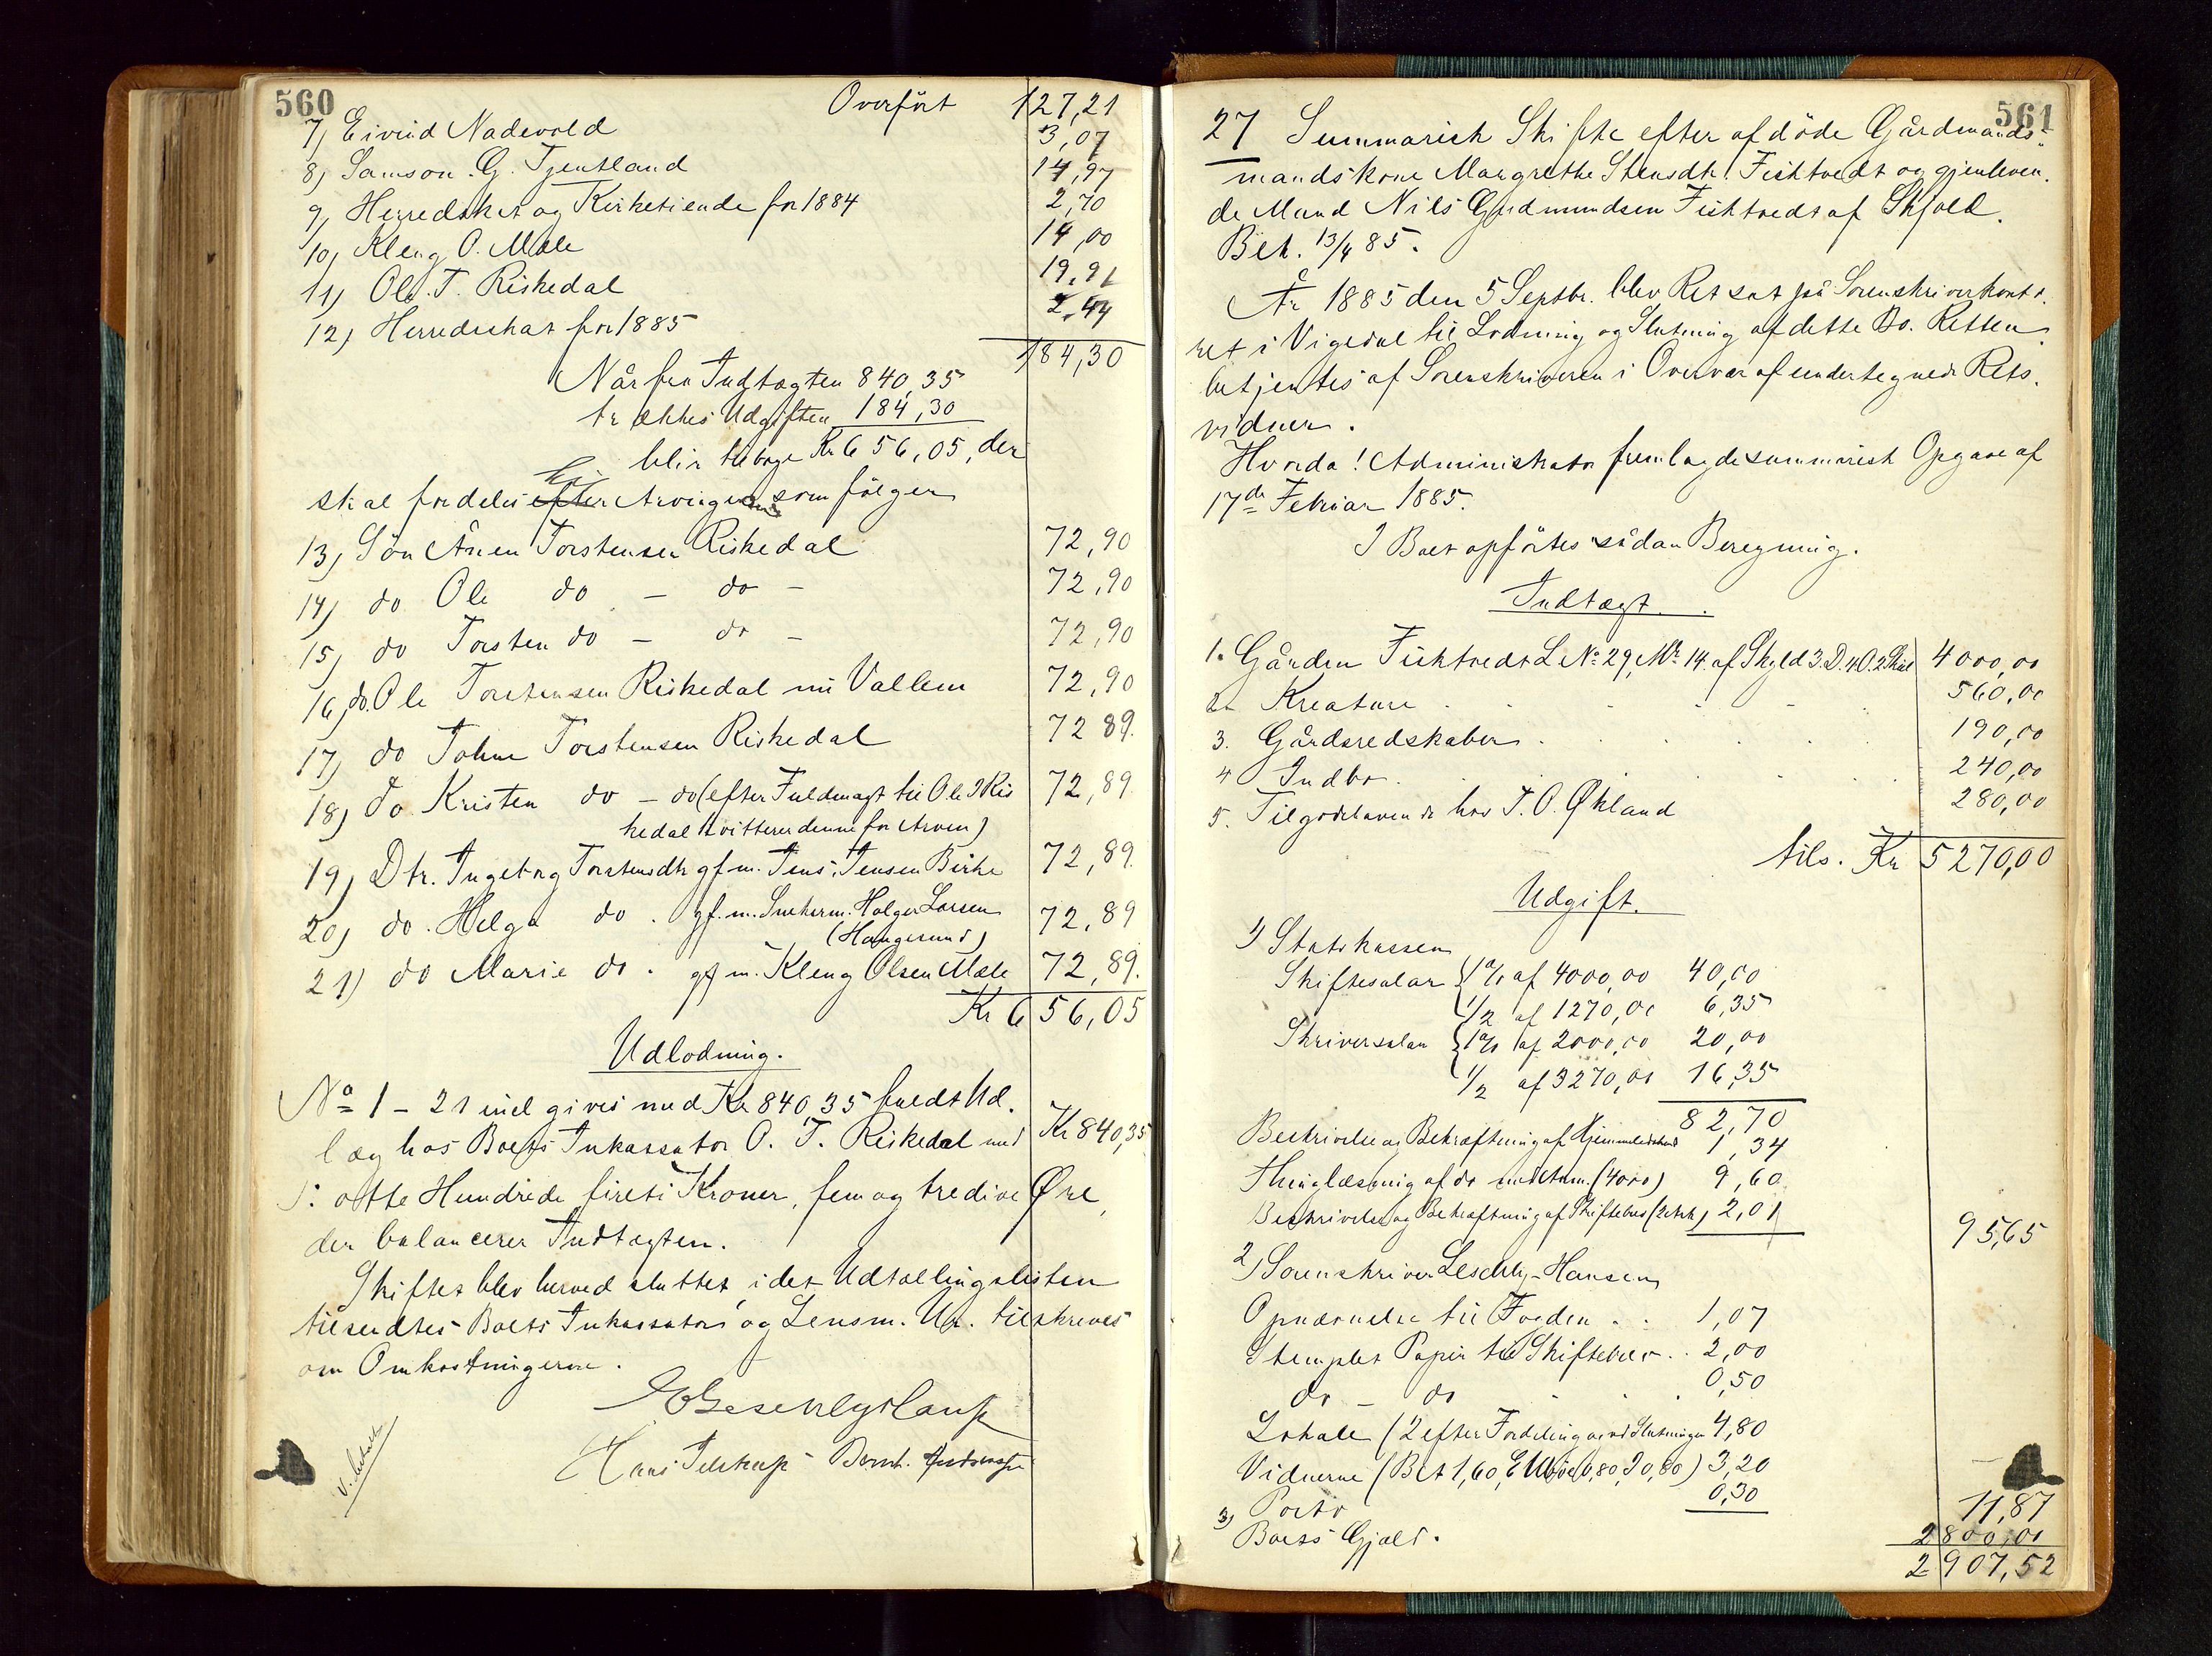 560
Overført 127,21
7) Eivind Nadevold 3,07
8) Samson G. Tjentland 14,97
9) Herredskat og Kirketiende for 1884 2,70
10) Kleng O. Mæle 14,00
11) Ole T. Riskedal 19,91
12) Herredsskat for 1885 2,44
184,30
Når fra Indtægten 840,35
trækkes Udgiften 184,30
blir tilbage Kr 656,05, der
skal fordeles efter Arvingerne som følger
13) Søn Ånen Torstensen Riskedal 72,90
14) do Ole do - do - 72,90
15) do Torsten do - do - 72,90
16) do. Ole Torstensen Riskedal nu Vallem 72,90
17) do Tohne Torstensen Riskedal 72 89.
18) do Kristen do - do (efter Fuldmagt til Ole T Ris 72,89
kedal kvitterer denne for Arven)
19) Dtr. Ingeborg Torstensdtr gf. m. Jens Jensen Birke 72,89.
20) do. Helga do. gf. m. Snekerm. Holger Larsen 72,89
(Haugesund)
21) do Marie do. gf m. Kleng Olsen Mæle 72,89.
Kr 656,05
Udlodning.
No 1 - 21 incl gives med Kr 840,35 fuldt Ud.
læg hos Boets Inkassator O. T. Riskedal med Kr 840,35
): otte Hundrede fireti Kroner, fem og tredive Øre,
der balancerer Indtægten.
Skiftet blev herved sluttet, idet Udtællingslisten
tilsendtes Boets Inkassator og Lensm. Ua. tilskreves
om Omkostningerne.
Hans Telstrup Bernt.
561
27 Summarisk Skifte efter afdøde Gårdmands-
mandskone Margrethe Stensdtr. Fishtvedt og gjenleven.
de Mand Nils Gudmundsen Fishtvedt af Skjold.
Bek. 13/4 85.
År 1885 den 5 Septbr. blev Ret sat på Sorenskriverkonto.
ret i Vigedal til Lodning og Slutning af dette Bo. Retten
betjentes af Sorenskriveren i Overvær af undertegnede Rets.
vidner.
Hvorda! Administrator fremlagde summarisk Opgave af
17de Februar 1885.
I Boet opførtes sådan Beregning.
Indtægt.
1. Gården Fishtvedt L No 29, Mr 14. af Skyld 3. D. 4 O. 2 Skil 4000,00
2 Kreature 560,00
3. Gårdsredskaber 190,00
4 Indbo 240,00
5. Tilgodehavende hos T. O. Økland 280,00
tils. Kr 5270,00
Udgift.
1) Statskassen
Skiftesalar { 1% af 4000,00 40,00
1/2 af 1270,00 6,35
Skriversalar { 1% af 2000,00 20,00
1/2 af 3270,00 16,35
82,70
Beskrivelse og Bekræftning af Hjemmelsbrevd 1,34
Thinglæsning af do (4000) 9,60
Beskrivelse og Bekræftning af Skiftebrev 2,01 95,65
2) Sorenskriver Leschly-Hansen
Opnævnelse til Fogden . . 1,07
Stemplet Papir til Skiftebrev . . 2,00
do - do 0,50
Lokale (2 efter Fordeling ved Slutningen 4,80
Vidnerne (Bet 1,60, 0,80, 0,80) 3,20
Porto 0,30 11,87
3) Boets Gjæld. 2800,00
2907,52